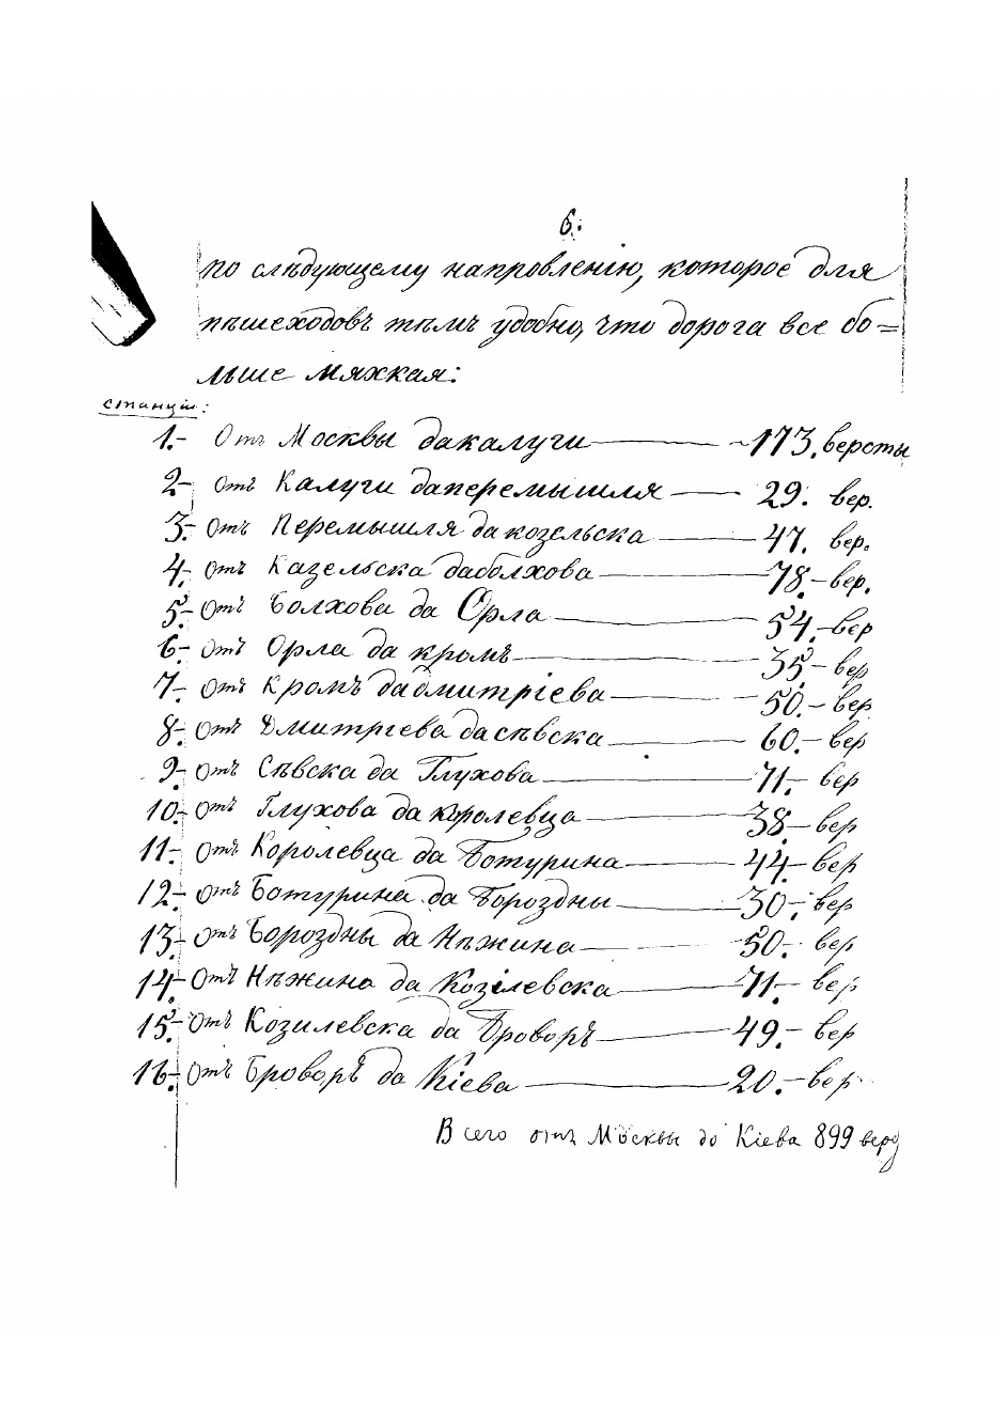 6.
по слѣдующему напровленію, которое для
пѣшеходовъ тѣмъ удобно, что дорога все бо=
льше мяхкая:
станціи:
1.- Отъ Москвы дакалуги — 173. версты
2- отъ Калуги даперемышля — 29. вер.
3.- отъ Перемышля да козельска — 47. вер.
4.- отъ Казельска даболхова — 78.- вер.
5.- отъ Болхова да Орла — 54.- вер
6.- отъ Орла да кромъ — 35.- вер
7.- отъ Кромъ дадмитріева — 50.- вер
8.- отъ Дмитріева дасѣвска — 60.- вер
9.- отъ Сѣвска да Глухова — 71.- вер
10.- отъ Глухова да королевца — 38.- вер
11.- отъ Королевца да Ботурина — 44.- вер
12.- отъ Ботурина да Борозды — 30.- вер
13.- отъ Борозды да Нѣжина — 50.- вер
14.- отъ Нѣжина да Козілевска — 71.- вер
15.- отъ Козилевска да Броворъ — 49.- вер
16.- отъ Броворъ да Кіева — 20.- вер
Всего отъ Москвы до Кіева 899 верс